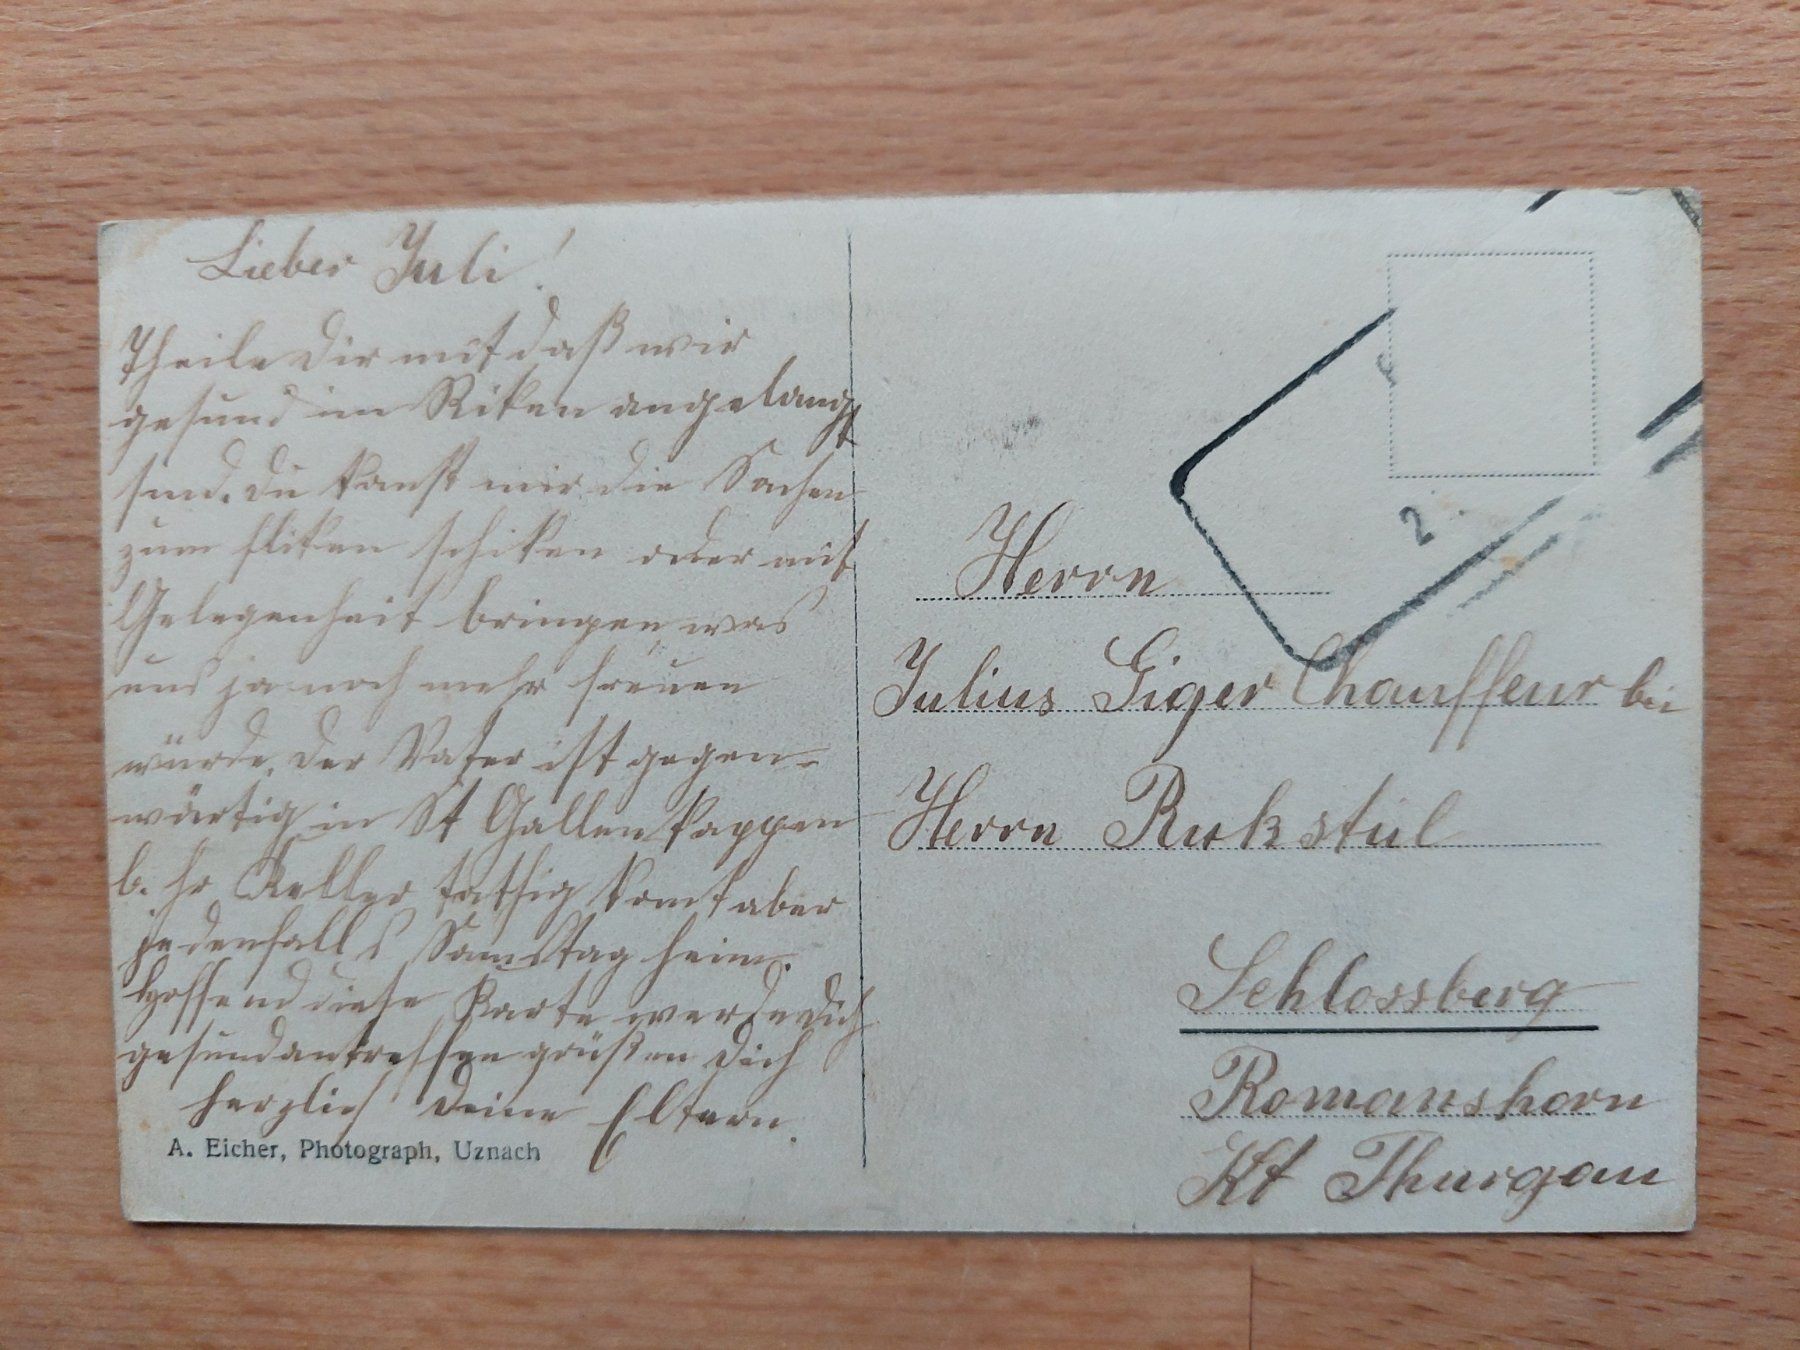 Lieber Juli!
Theile Dir mit daß wir
gesund im Riken angelangt
sind. Du kanst mir die Sachen
zum fliken schiken oder mit
Gelegenheit bringen was
uns ja noch mehr freuen
würde. Der Vater ist gegen=
wärtig in St Gallen Kappen
b. Hr Keller tathig komt aber
jedenfalls Samstag heim.
Hoffend diese Karte werde Dich
gesund antreffen grüßen Dich
herzlich Deine Eltern.
A. Eicher, Photograph, Uznach
2.
Herrn
Julius Giger Chauffeur bei
Herrn Rukstul
Schlossberg
Romanshorn
Kt Thurgau